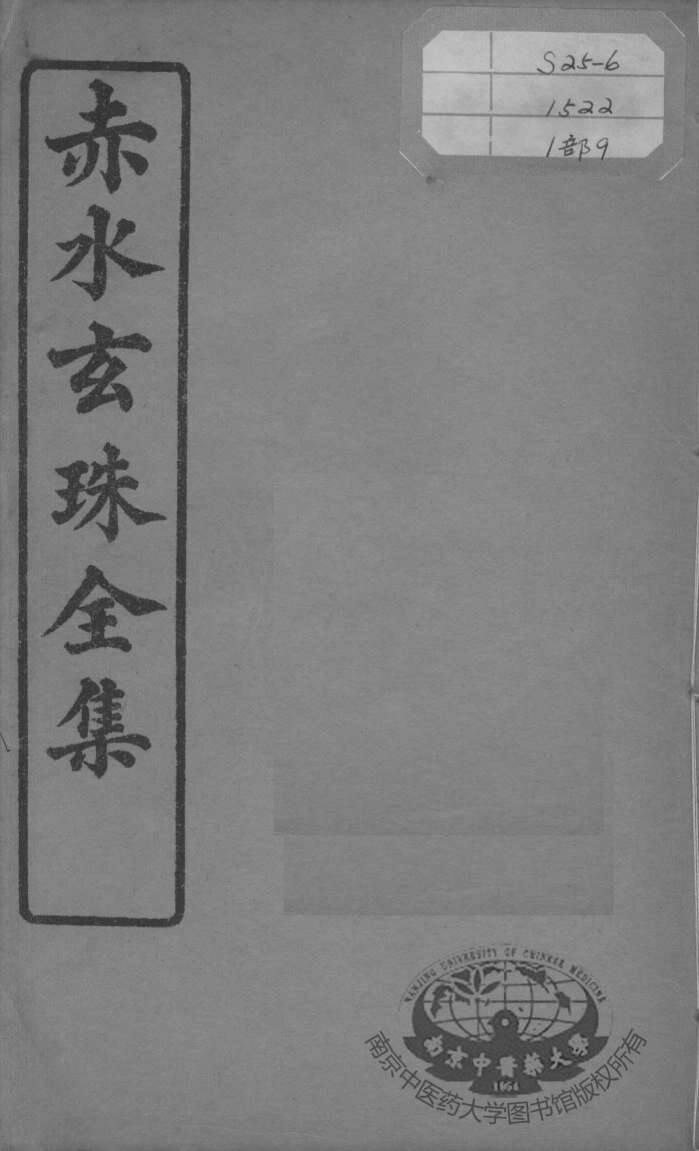 赤水玄珠全集
S25-6
1522
1部9
NANJING UNIVERSITY OF CHINESE MEDICINE
南京中醫藥大學
1954
南京中医药大学图书馆版权所有